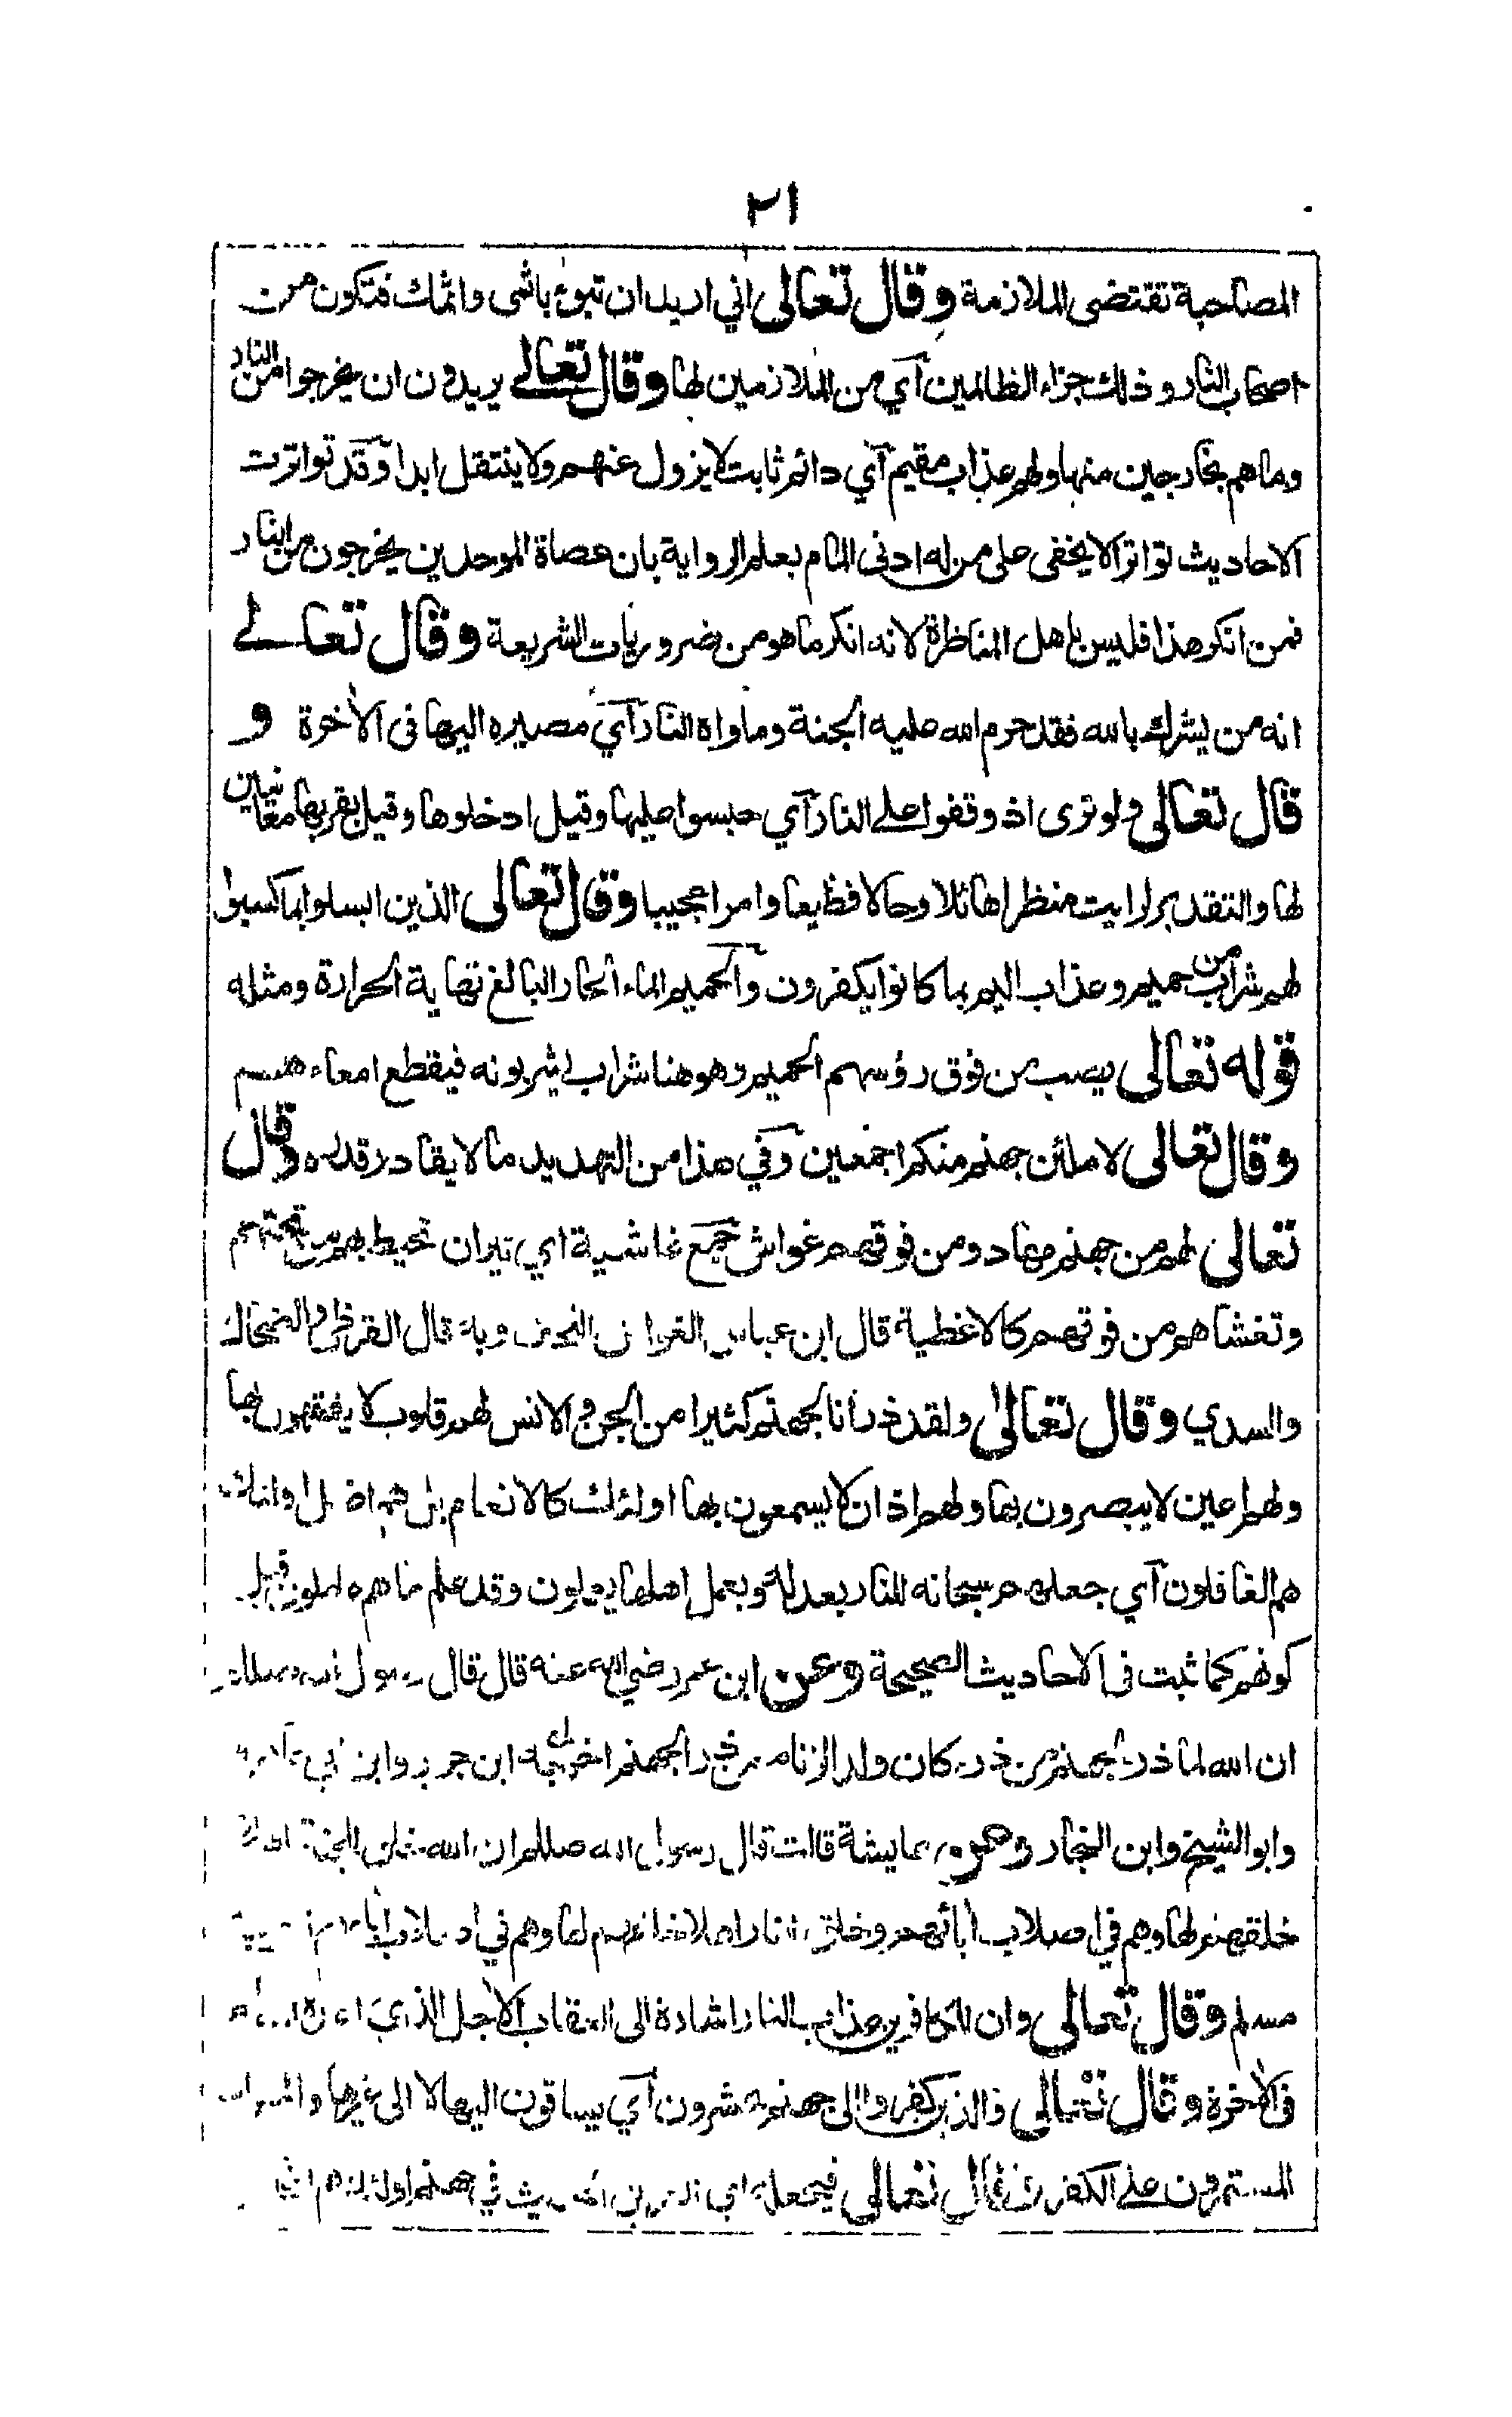 ٢١
المصاحبة تقتضى الملازمة وقال تعالى اني اريد ان تبوء باثمى واثمك فتكون من
اصحاب النار وذلك جزاء الظالمين آي من الملازمين لها وقال تعالے يريدون ان يخرجوا من النار
وما هم بخارجين منها ولهم عذاب مقيم آي دائم ثابت لا يزول عنهم ولا ينتقل ابدا وقد تواترت
الاحاديث تواترا لا يخفى على من له ادنى المام بعلم الرواية بان عصاة الموحدين يخرجون من النار
فمن انكر هذا فليس باهل المناظرة لانه انكر ما هو من ضروريات الشريعة وقال تعالے
انه من يشرك بالله فقد حرم الله عليه الجنة وماواه النار آي مصيره اليها فى الآخرة و
قال تعالى ولو ترى اذ وقفوا على النار آي حبسوا عليها وقيل ادخلوها وقيل بقربها معاينين
لها والتقدير لرايت منظرا هائلا وحالا فظيعا وامرا عجيبا وقال تعالى الذين ابسلوا بما كسبوا
لهم شراب من حميم وعذاب اليم بما كانوا يكفرون والحميم الماء الحار البالغ نهاية الحرارة ومثله
قوله تعالى يصب من فوق رؤسهم الحميم وهو هنا شراب يشربونه فيقطع امعاء هم
وقال تعالى لاملئن جهنم منكم اجمعين وفي هذا من التهديد ما لا يقادر قدره وقال
تعالى لهم من جهنم مهاد ومن فوقهم غواش جمع غاشية اي نيران تحيط بهم من تحتهم
وتغشاهم من فوقهم كالاغطية قال ابن عباس الغواش اللحف وبه قال القرظي والضحاك
والسدي وقال تعالى ولقد ذرأنا لجهنم كثيرا من الجن والانس لهم قلوب لا يفقهون بها
ولهم اعين لا يبصرون بها ولهم اذان لا يسمعون بها اولئك كالانعام بل هم اضل اولئك
هم الغافلون آي جعلهم سبحانه للنار بعدله وبعمل اهلها يعملون وقد علم ما هم عاملون قبل
كونهم كما ثبت فى الاحاديث الصحيحة وعن ابن عمر رضي الله عنه قال قال رسول الله صللم
ان الله لما ذرأ لجهنم من ذرأ كان ولد الزنا ممن ذرأ لجهنم اخرجه ابن جرير وابن ابي
وابو الشيخ وابن النجار وعن عايشة قالت قال رسول الله صللم ان الله خلق الجنة اهلا
خلقهم لها وهم في اصلاب آبائهم وخلق النار اهلا خلقهم لها وهم في اصلاب آبائهم
مسلم وقال تعالى وان للكافرين عذاب النار اشارة الى العقاب الآجل الذي
فى الآخرة وقال تعالى فالذين كفروا الى جهنم يحشرون آي يساقون اليها لا الى غيرها والمراد
المستمرون على الكفر وقال تعالى فيجعله اي الخبيث في جهنم اولئك هم